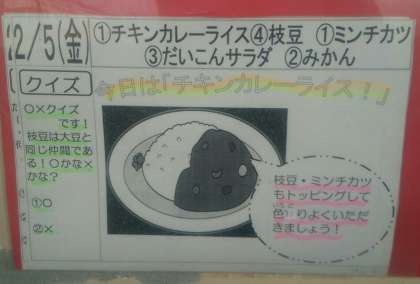 12/5(金)
①チキンカレーライス④枝豆 ①ミンチカツ
③だいこんサラダ ②みかん
クイズ
今日は「チキンカレーライス!」
○×クイズ
です!
枝豆は大豆と
同じ仲間であ
る!○かな×
かな?
①○
②×
枝豆・ミンチカツ
もトッピングして
色どりよくいただ
きましょう!